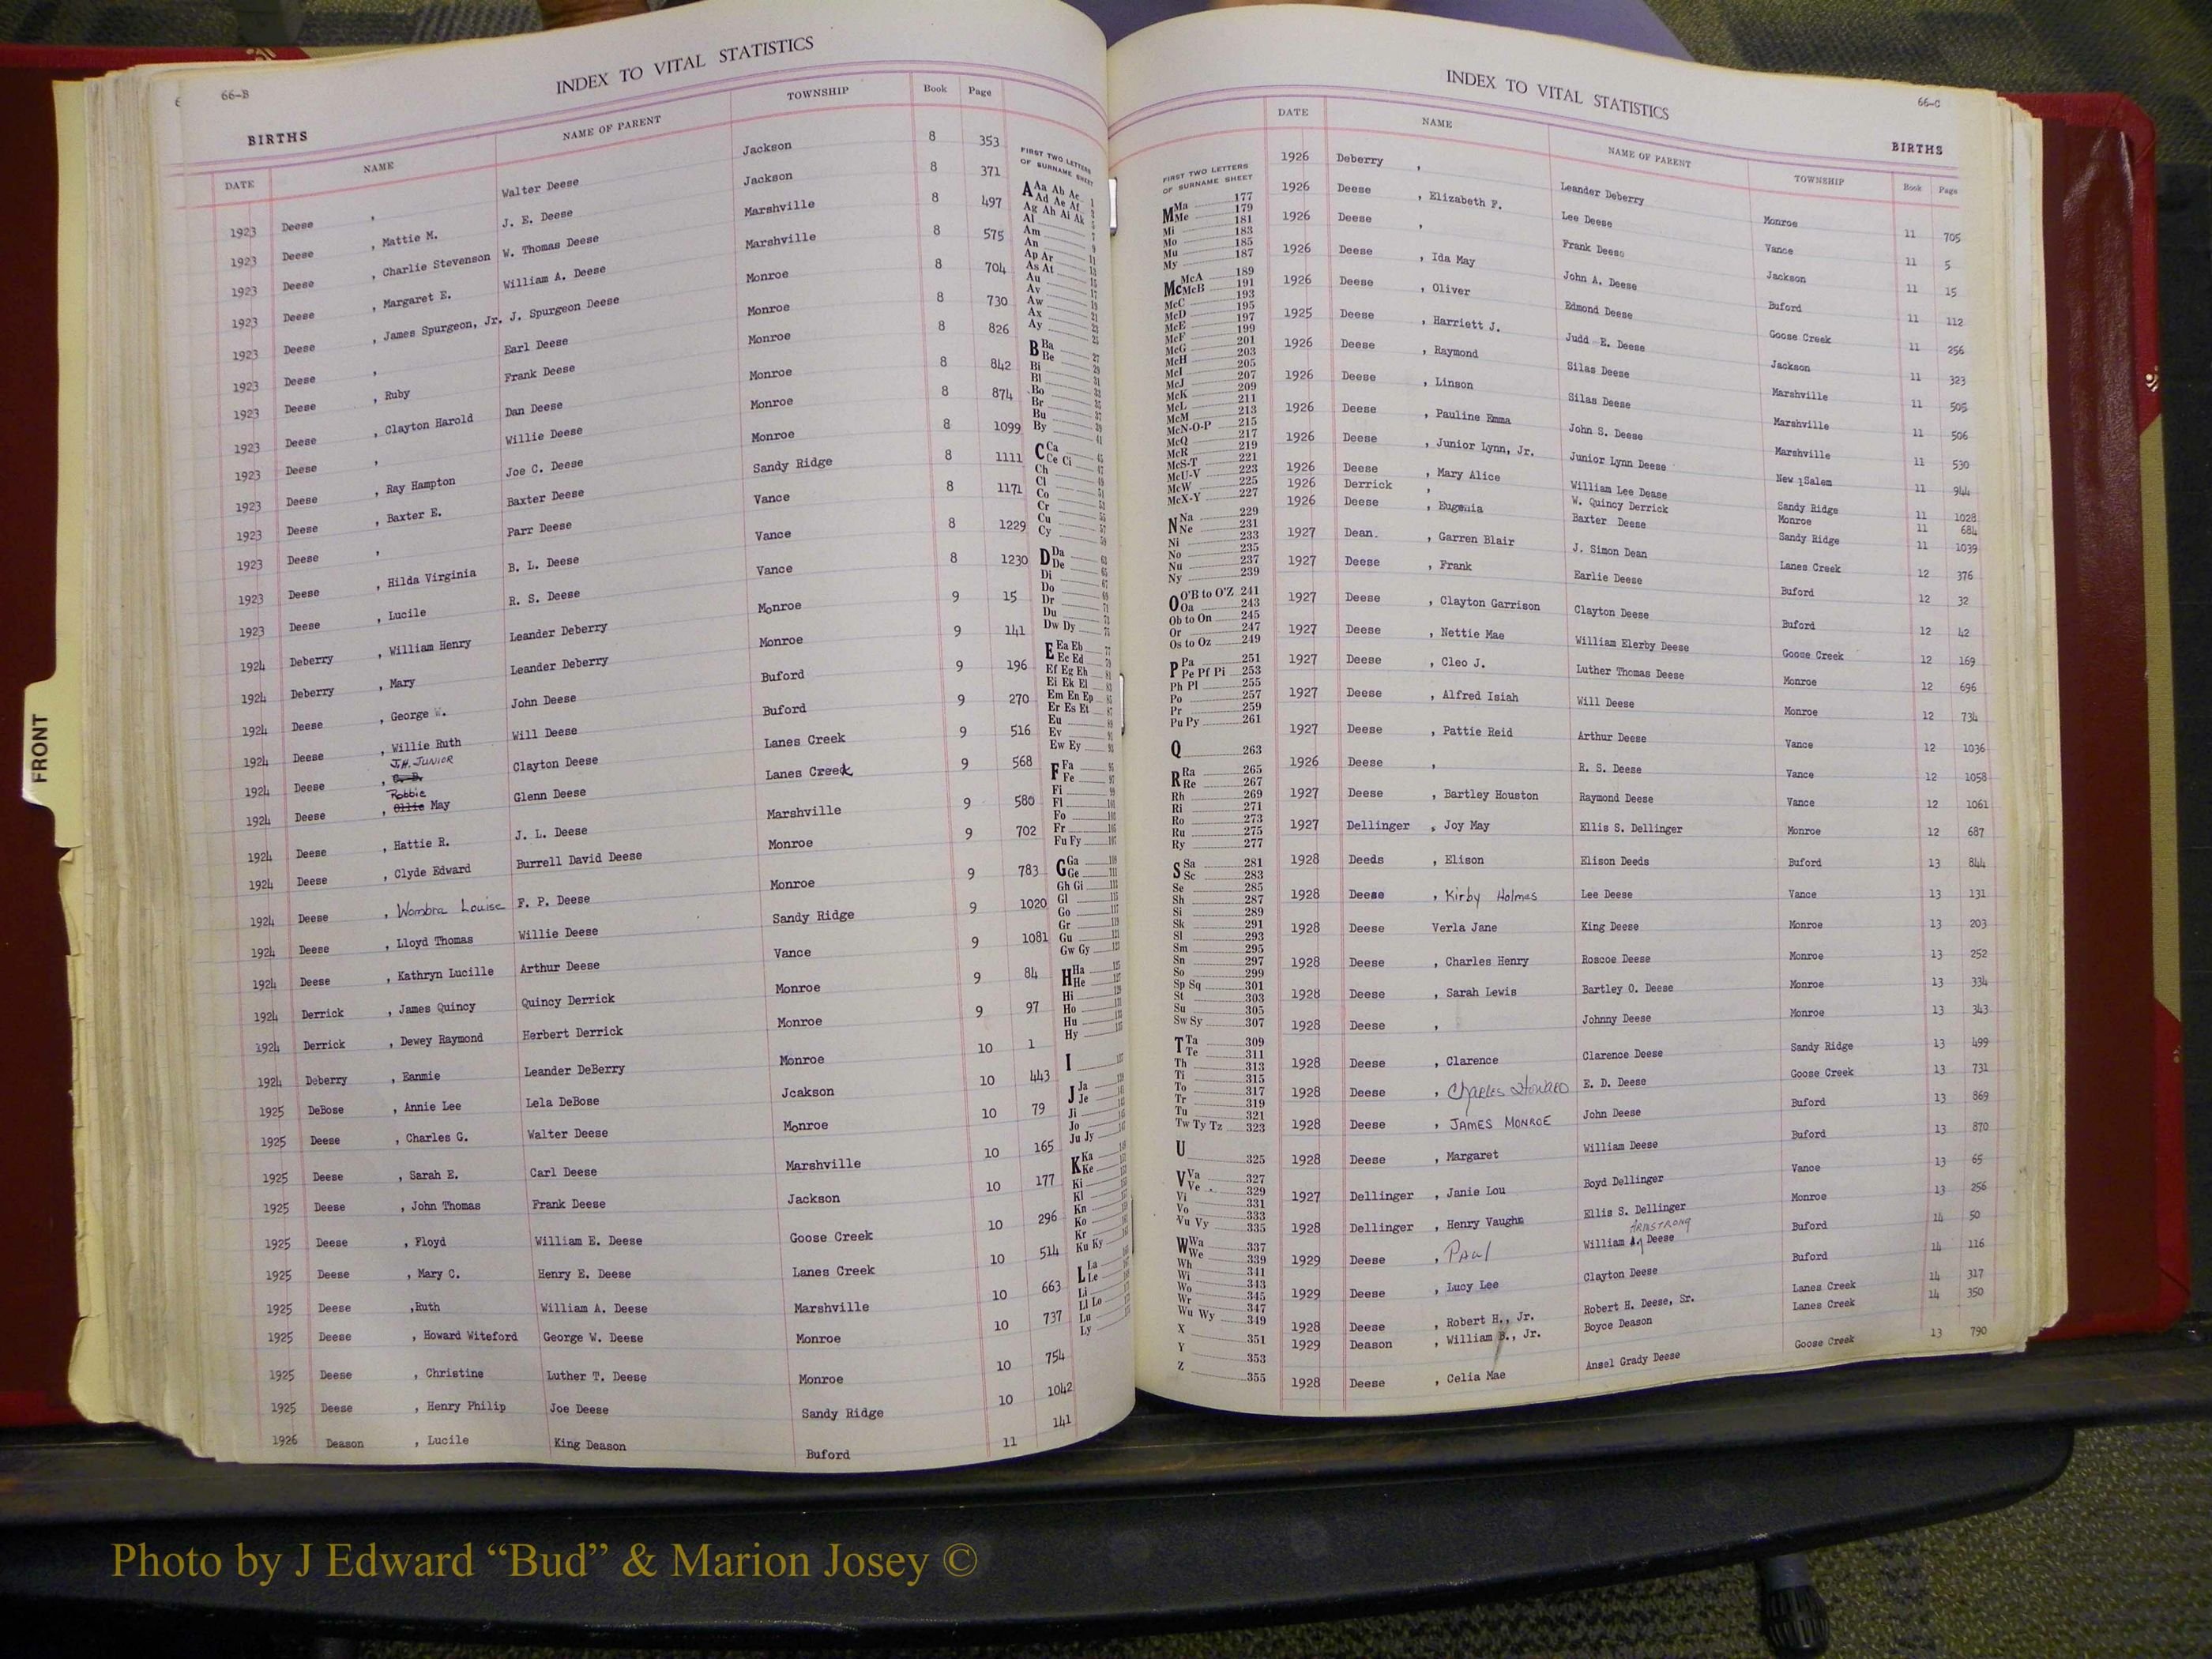 66-B
INDEX TO VITAL STATISTICS
BIRTHS
DATE NAME NAME OF PARENT TOWNSHIP Book Page
1923 Deese , Walter Deese Jackson 8 353
1923 Deese , Mattie M. J. E. Deese Jackson 8 371
1923 Deese , Charlie Stevenson W. Thomas Deese Marshville 8 497
1923 Deese , Margaret E. William A. Deese Marshville 8 575
1923 Deese , James Spurgeon, Jr. J. Spurgeon Deese Monroe 8 704
1923 Deese , Earl Deese Monroe 8 730
1923 Deese , Ruby Frank Deese Monroe 8 826
1923 Deese , Clayton Harold Dan Deese Monroe 8 842
1923 Deese , Willie Deese Monroe 8 874
1923 Deese , Ray Hampton Joe C. Deese Monroe 8 1099
1923 Deese , Baxter E. Baxter Deese Sandy Ridge 8 1111
1923 Deese , Parr Deese Vance 8 1171
1923 Deese , Hilda Virginia B. L. Deese Vance 8 1229
1923 Deese , Lucile R. S. Deese Vance 8 1230
1924 Deberry , William Henry Leander Deberry Monroe 9 15
1924 Deberry , Mary Leander Deberry Monroe 9 141
1924 Deese , George W. John Deese Buford 9 196
1924 Deese , Willie Ruth Will Deese Buford 9 270
1924 Deese , J.H. JUNIOR Clayton Deese Lanes Creek 9 516
1924 Deese , Robbie Ollie May Glenn Deese Lanes Creek 9 568
1924 Deese , Hattie R. J. L. Deese Marshville 9 580
1924 Deese , Clyde Edward Burrell David Deese Monroe 9 702
1924 Deese , Wombra Louise F. P. Deese Monroe 9 783
1924 Deese , Lloyd Thomas Willie Deese Sandy Ridge 9 1020
1924 Deese , Kathryn Lucille Arthur Deese Vance 9 1081
1924 Derrick , James Quincy Quincy Derrick Monroe 9 84
1924 Derrick , Dewey Raymond Herbert Derrick Monroe 9 97
1924 Deberry , Eanmie Leander DeBerry Monroe 10 1
1925 DeBose , Annie Lee Lela DeBose Jcakson 10 443
1925 Deese , Charles G. Walter Deese Monroe 10 79
1925 Deese , Sarah E. Carl Deese Marshville 10 165
1925 Deese , John Thomas Frank Deese Jackson 10 177
1925 Deese , Floyd William E. Deese Goose Creek 10 296
1925 Deese , Mary C. Henry E. Deese Lanes Creek 10 514
1925 Deese ,Ruth William A. Deese Marshville 10 663
1925 Deese , Howard Witeford George W. Deese Monroe 10 737
1925 Deese , Christine Luther T. Deese Monroe 10 754
1925 Deese , Henry Philip Joe Deese Sandy Ridge 10 1042
1926 Deason , Lucile King Deason Buford 11 141
FIRST TWO LETTERS
OF SURNAME SHEET
A Aa Ab Ac
Ad Ae Af
Ag Ah Ai Ak
Al
Am
An
Ap Ar
As At
Au
Av
Aw
Ax
Ay
B Ba
Be
Bi
Bl
Bo
Br
Bu
By
C Ca
Ce Ci
Ch
Cl
Co
Cr
Cu
Cy
D Da
De
Di
Do
Dr
Du
Dw Dy
E Ea Eb
Ec Ed
Ef Eg Eh
Ei Ek El
Em En Ep
Er Es Et
Eu
Ev
Ew Ey
F Fa
Fe
Fi
Fl
Fo
Fr
Fu Fy
G Ga
Ge
Gh Gi
Gl
Go
Gr
Gu
Gw Gy
H Ha
He
Hi
Ho
Hu
Hy
I
J Ja
Je
Ji
Jo
Ju Jy
K Ka
Ke
Ki
Kl
Kn
Ko
Kr
Ku Ky
L La
Le
Li
Ll Lo
Lu
Ly
FRONT
66-C
INDEX TO VITAL STATISTICS
BIRTHS
FIRST TWO LETTERS
OF SURNAME SHEET
M Ma 177
Me 179
Mi 181
Mo 183
Mu 185
My 187
Mc McA 189
McB 191
McC 193
McD 195
McE 197
McF 199
McG 201
McH 203
McI 205
McJ 207
McK 209
McL 211
McM 213
McN-O-P 215
McQ 217
McR 219
McS-T 221
McU-V 223
McW 225
McX-Y 227
N Na 229
Ne 231
Ni 233
No 235
Nu 237
Ny 239
O O'B to O'Z 241
Oa 243
Ob to On 245
Or 247
Os to Oz 249
P Pa 251
Pe Pf Pi 253
Ph Pl 255
Po 257
Pr 259
Pu Py 261
Q 263
R Ra 265
Re 267
Rh 269
Ri 271
Ro 273
Ru 275
Ry 277
S Sa 281
Sc 283
Se 285
Sh 287
Si 289
Sk 291
Sl 293
Sm 295
Sn 297
So 299
Sp Sq 301
St 303
Su 305
Sw Sy 307
T Ta 309
Te 311
Th 313
Ti 315
To 317
Tr 319
Tu 321
Tw Ty Tz 323
U 325
V Va 327
Ve 329
Vi 331
Vo 333
Vu Vy 335
W Wa 337
We 339
Wh 341
Wi 343
Wo 345
Wr 347
Wu Wy 349
X 351
Y 353
Z 355
DATE NAME NAME OF PARENT TOWNSHIP Book Page
1926 Deberry , Leander Deberry Monroe 11 705
1926 Deese , Elizabeth F. Lee Deese Vance 11 5
1926 Deese , Frank Deese Jackson 11 15
1926 Deese , Ida May John A. Deese Buford 11 112
1926 Deese , Oliver Edmond Deese Goose Creek 11 256
1925 Deese , Harriett J. Judd E. Deese Jackson 11 323
1926 Deese , Raymond Silas Deese Marshville 11 505
1926 Deese , Linson Silas Deese Marshville 11 506
1926 Deese , Pauline Emma John S. Deese Marshville 11 530
1926 Deese , Junior Lynn, Jr. Junior Lynn Deese New Salem 11 944
1926 Deese , Mary Alice William Lee Dease Sandy Ridge 11 1028
1926 Derrick , W. Quincy Derrick Monroe 11 684
1926 Deese , Eugenia Baxter Deese Sandy Ridge 11 1039
1927 Dean. , Garren Blair J. Simon Dean Lanes Creek 12 376
1927 Deese , Frank Earlie Deese Buford 12 32
1927 Deese , Clayton Garrison Clayton Deese Buford 12 42
1927 Deese , Nettie Mae William Elerby Deese Goose Creek 12 169
1927 Deese , Cleo J. Luther Thomas Deese Monroe 12 696
1927 Deese , Alfred Isiah Will Deese Monroe 12 734
1927 Deese , Pattie Reid Arthur Deese Vance 12 1036
1926 Deese , R. S. Deese Vance 12 1058
1927 Deese , Bartley Houston Raymond Deese Vance 12 1061
1927 Dellinger , Joy May Ellis S. Dellinger Monroe 12 687
1928 Deeds , Elison Elison Deeds Buford 13 844
1928 Deese , Kirby Holmes Lee Deese Vance 13 131
1928 Deese Verla Jane King Deese Monroe 13 203
1928 Deese , Charles Henry Roscoe Deese Monroe 13 252
1928 Deese , Sarah Lewis Bartley O. Deese Monroe 13 334
1928 Deese , Johnny Deese Monroe 13 343
1928 Deese , Clarence Clarence Deese Sandy Ridge 13 499
1928 Deese , Charles Howard E. D. Deese Goose Creek 13 731
1928 Deese , JAMES MONROE John Deese Buford 13 869
1928 Deese , Margaret William Deese Buford 13 870
1927 Dellinger , Janie Lou Boyd Dellinger Vance 13 65
1928 Dellinger , Henry Vaughn Ellis S. Dellinger Monroe 13 256
1929 Deese , PAUL William A. ARMSTRONG Deese Buford 14 50
1929 Deese , Lucy Lee Clayton Deese Buford 14 116
1928 Deese , Robert H., Jr. Robert H. Deese, Sr. Lanes Creek 14 317
1929 Deason , William B., Jr. Boyce Deason Lanes Creek 14 350
1928 Deese , Celia Mae Ansel Grady Deese Goose Creek 13 790
Photo by J Edward “Bud” & Marion Josey ©